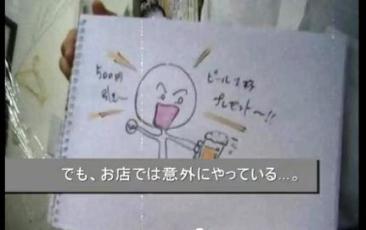 500円
ビール1杯
プレゼント〜!!
でも、お店では意外にやっている…。